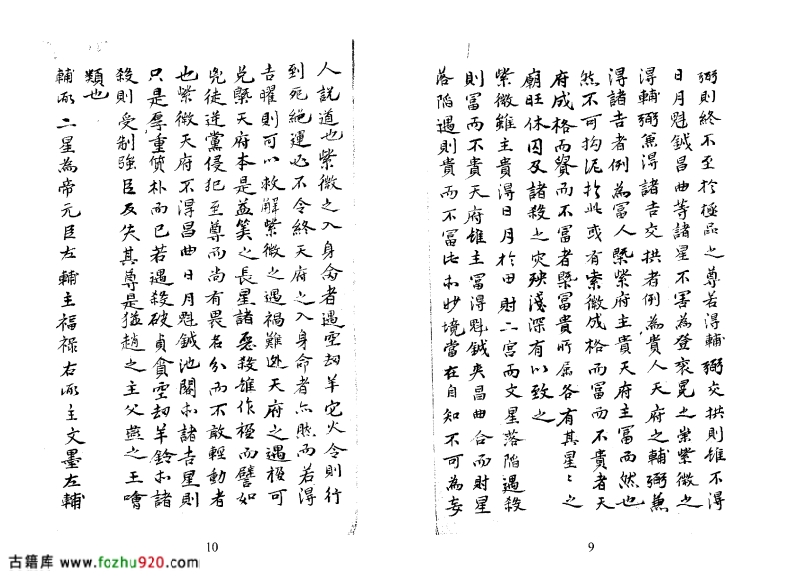 弼則終不至於極品之尊若得輔弼交拱則雖不得
日月魁鉞昌曲等諸星不害為登袞冕之崇紫微之
得輔弼兼得諸吉交拱者例為貴人天府之輔弼兼
得諸吉者例為富人槩紫府主貴天府主富而然也
然不可拘泥於此或有紫微成格而富而不貴者天
府成格而貴而不富者槩富貴所屬各有其星〻之
廟旺休囚及諸殺之灾殃淺深有以致之
紫微雖主貴得日月於田財二宮而文星落陷遇殺
則富而不貴天府雖主富得魁鉞夾昌曲合而財星
落陷遇則貴而不富此亦妙境當在自知不可為妄
9
人説道也紫微之入身命者遇空劫羊它火令則行
到死絕運必不令終天府之入身命者亦然而若得
吉曜則可以救解紫微之遇禍難逃天府之遇極可
兌槩天府本是益筭之長星諸惡殺雖作極而譬如
兇徒逆黨侵犯至尊而尚有畏名分而不敢輕動者
也紫微天府不得昌曲日月魁鉞池閣亦諸吉星則
只是厚重質朴而已若遇殺破貞貪空劫羊鈴亦諸
殺則受制強臣反失其尊是猶趙之主父燕之王噲
類也
輔弼二星為帝元臣左輔主福祿右弼主文墨左輔
10
古籍库 www.fozhu920.com